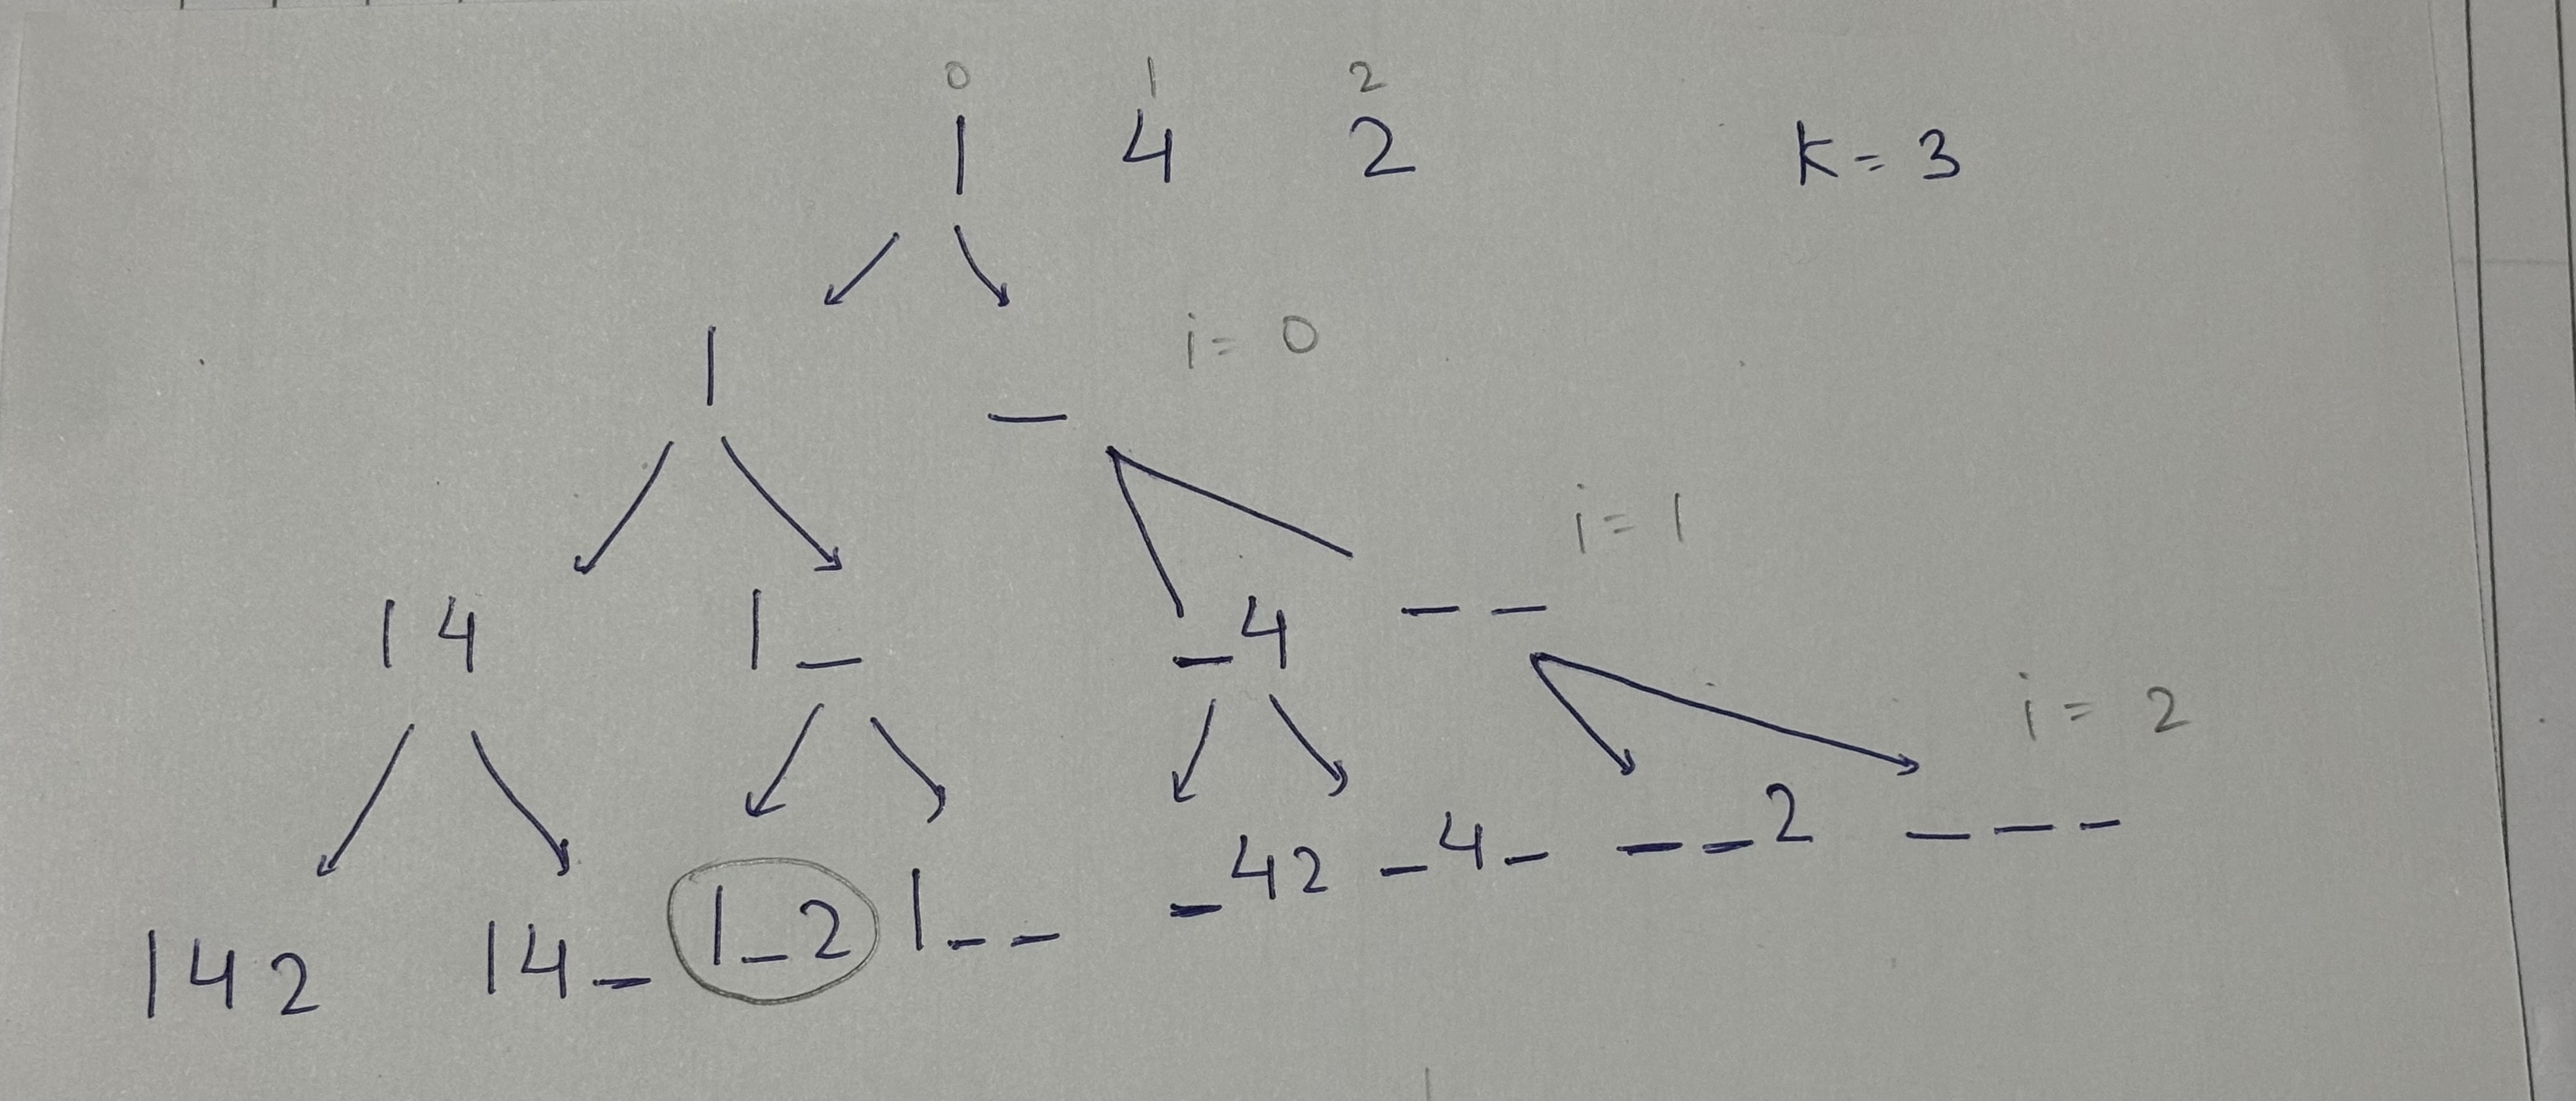 0 1 2
1 4 2 K = 3
1 _ i = 0
14 1_ _4 _ _ i = 1
i = 2
142 14_ 1_2 1_ _ _42 _4_ _ _2 _ _ _